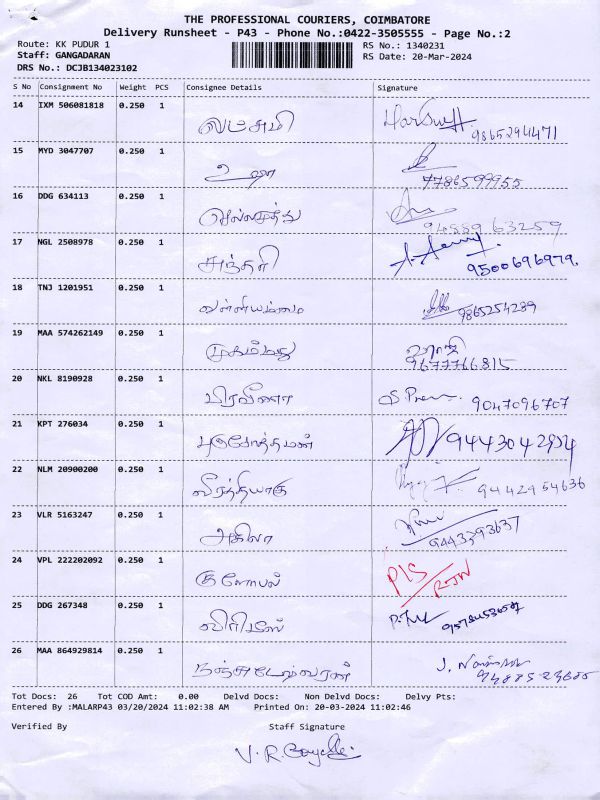 THE PROFESSIONAL COURIERS, COIMBATORE
Delivery Runsheet - P43 - Phone No.:0422-3505555 - Page No.:2
Route: KK PUDUR 1 RS No.: 1340231
Staff: GANGADARAN RS Date: 20-Mar-2024
DRS No.: DCJB134023102
S No Consignment No Weight PCS Consignee Details Signature
14 IXM 506081818 0.250 1
லட்சுமி 9865294471
15 MYD 3047707 0.250 1
உஷா 7786599955
16 DDG 634113 0.250 1
செல்லமுத்து 94889 63259
17 NGL 2508978 0.250 1
அஞ்சலி 9500696979.
18 TNJ 1201951 0.250 1
வள்ளியம்மை 9865254289
19 MAA 574262149 0.250 1
முகம்மது
9677766815
20 NKL 8190928 0.250 1
பிரவீணா S Prem 9047096707
21 KPT 276034 0.250 1
புருசோத்தமன் 9443042954
22 NLM 20900200 0.250 1
கீர்த்தியாகு 9442954636
23 VLR 5163247 0.250 1
அகிலா 9443393637
24 VPL 222202092 0.250 1
PIS
RTN
25 DDG 267348 0.250 1
26 MAA 864929814 0.250 1
நஞ்சுடேஸ்வரன் 94885 23685
Tot Docs: 26 Tot COD Amt: 0.00 Delvd Docs: Non Delvd Docs: Delvy Pts:
Entered By :MALARP43 03/20/2024 11:02:38 AM Printed On: 20-03-2024 11:02:46
Verified By Staff Signature